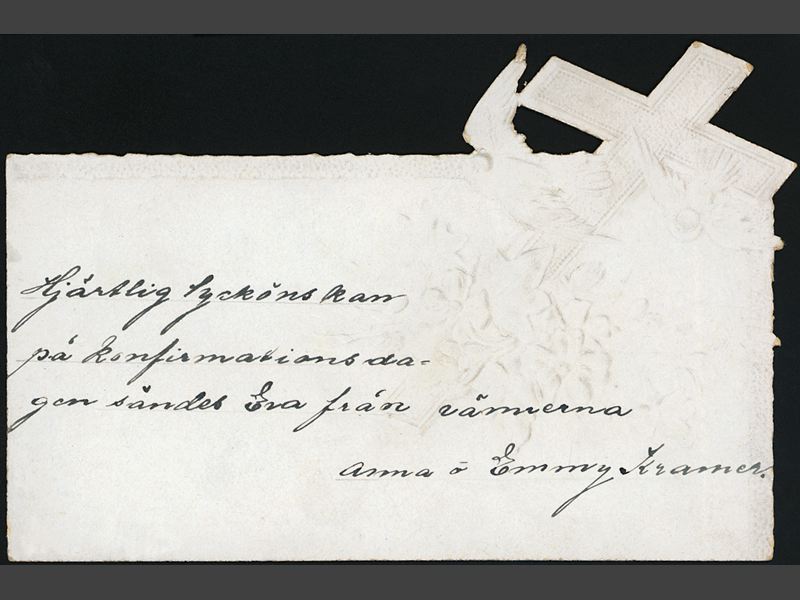 Hjärtlig lyckönskan
på konfirmationsda-
gen sändes Eva från vännerna
Anna o Emmy Kramer.